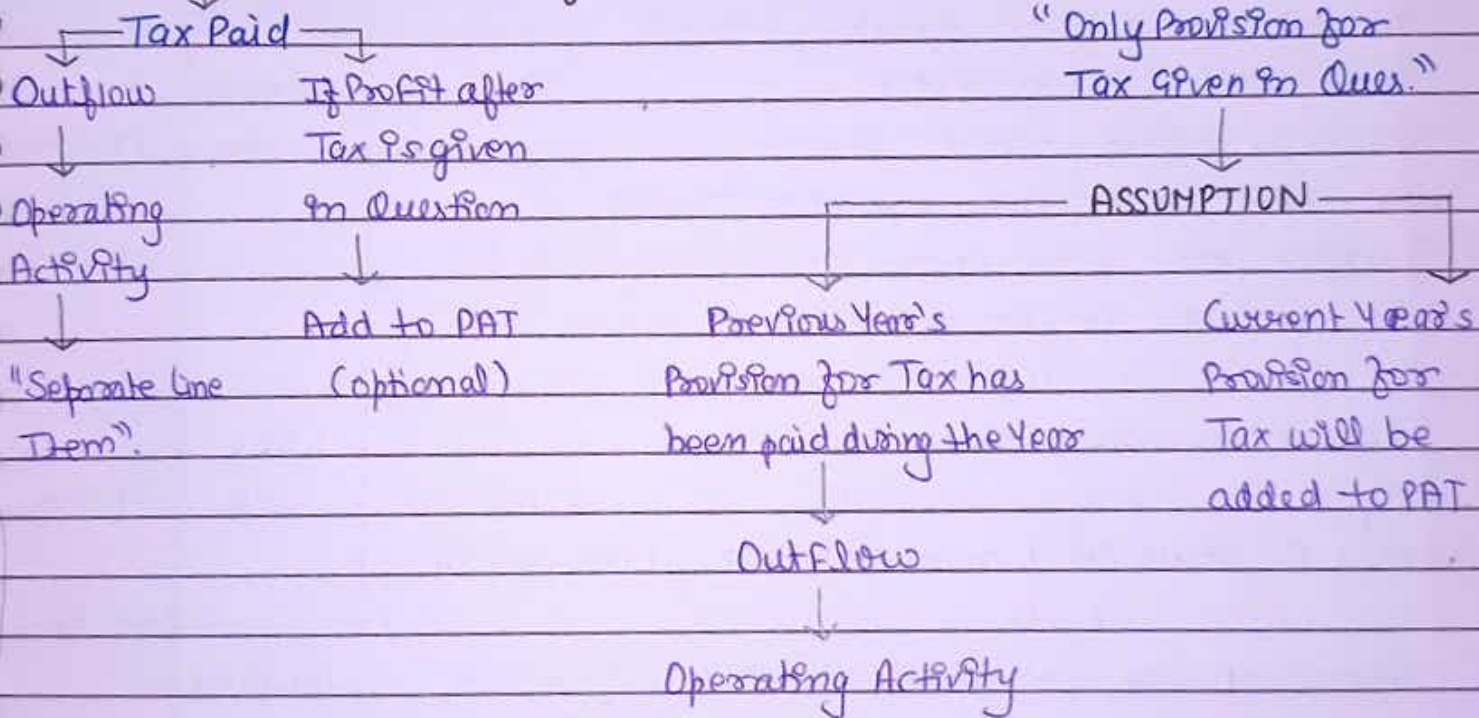 Tax Paid
Outflow
Operating
Activity
"Separate line
Item".
If Profit after
Tax is given
in Question
Add to PAT
(optional)
"Only Provision for
Tax Given in Ques."
ASSUMPTION
Previous Year's
Provision for Tax has
been paid during the Year
Outflow
Operating Activity
Current Year's
Provision for
Tax will be
added to PAT